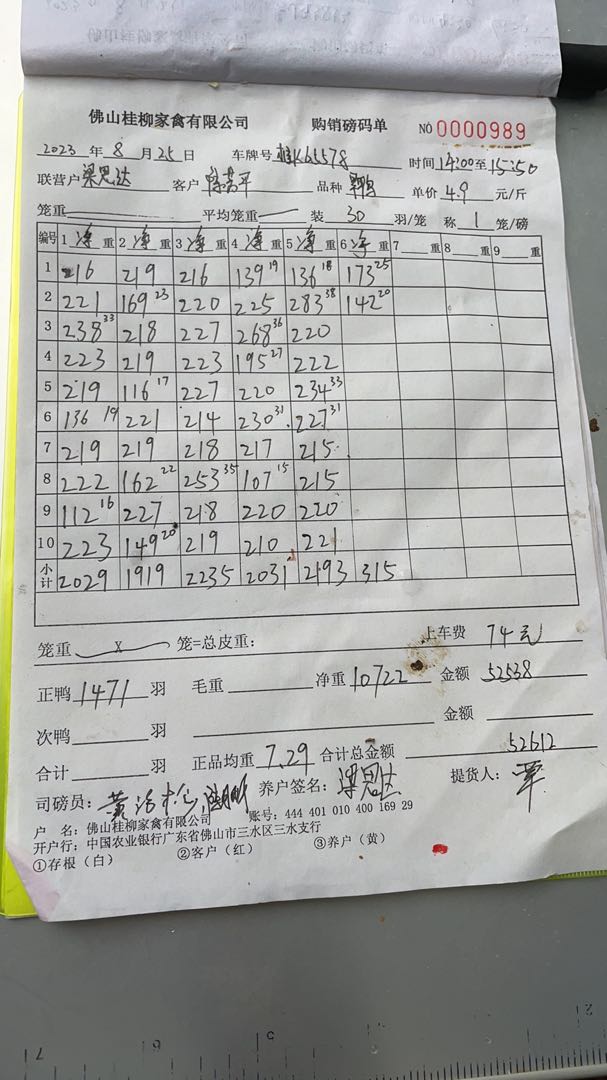 佛山桂柳家禽有限公司 购销磅码单 NO 0000989
2023 年 8 月 25 日 车牌号 桂K65578 时间 14:00至15:50
联营户 梁思达 客户 平 品种 单价 4.9 元/斤
笼重 平均笼重 装 30 羽/笼 称 1 笼/磅
编号 1 净 重 2 净 重 3 净 重 4 净 重 5 净 重 6 净 重 7 重 8 重 9 重
1 216 219 216 139 19 136 18 173 25
2 221 169 23 220 225 283 38 142 20
3 238 33 218 227 268 36 220
4 223 219 223 195 27 222
5 219 116 17 227 220 234 33
6 136 19 221 214 230 31 227 31
7 219 219 218 217 215
8 222 162 22 253 35 107 15 215
9 112 16 227 218 220 220
10 223 149 20 219 210 221
小计 2029 1919 2235 2031 2193 315
笼重 x 笼=总皮重: 上车费 74元
正鸭 1471 羽 毛重 净重 10722 金额 52538
次鸭 羽 金额
合计 羽 正品均重 7.29 合计总金额 52612
司磅员: 养户签名: 梁思达 提货人: 覃
户 名: 佛山桂柳家禽有限公司 账号: 444 401 010 400 169 29
开户行: 中国农业银行广东省佛山市三水区三水支行
①存根(白) ②客户(红) ③养户(黄)